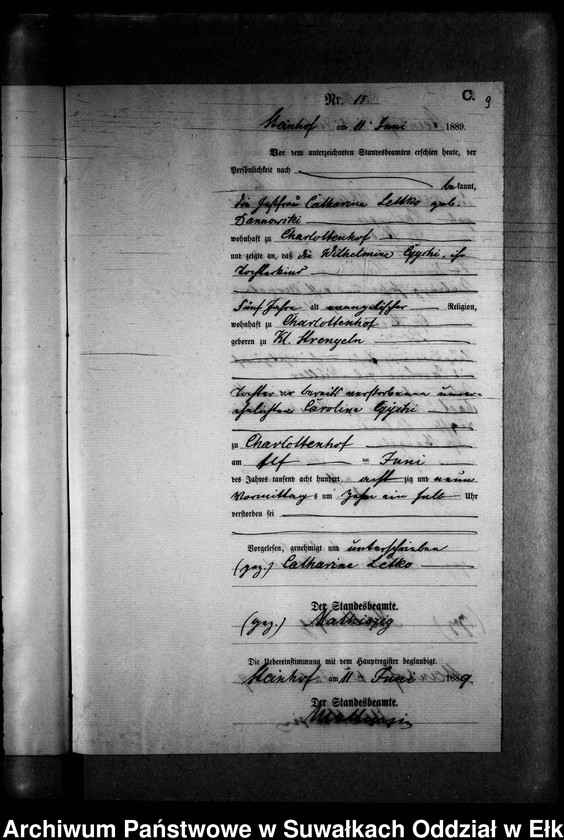 C. 9
Nr. 15.
Steinhof am 11ten Juni 1889.
Vor dem unterzeichneten Standesbeamten erschien heute, der
Persönlichkeit nach
bekannt,
die Catharina Lettko geb.
Dannowski
wohnhaft zu Charlottenhof
und zeigte an, daß die Wilhelmine ihr
Tochterkind
fünf Jahre alt evangelischer Religion,
wohnhaft zu Charlottenhof
geboren zu Kl. Strengeln
Tochter der bereits verstorbenen unver-
ehelichten Caroline
zu Charlottenhof
am elf ten Juni
des Jahres tausend acht hundert acht zig und neun
Vormittags um zehn ein halb Uhr
verstorben sei
Vorgelesen, genehmigt und unterschrieben
(gez.) Catharine Letko
Der Standesbeamte.
(gez.)
Die Uebereinstimmung mit dem Hauptregister beglaubigt.
Steinhof am 11 Juni 1889.
Der Standesbeamte.
Archiwum Państwowe w Suwałkach Oddział w Ełk